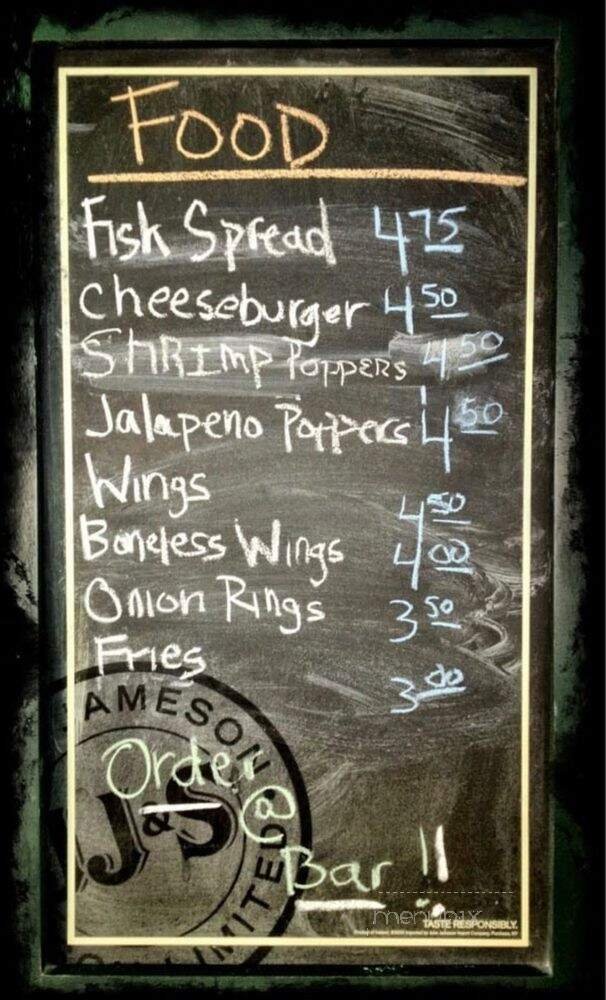 FOOD
Fish Spread 4 75
Cheeseburger 4 50
SHRImp POPPERS 4 50
Jalapeno Poppers 4 50
Wings 4 50
Boneless Wings 4 00
Onion Rings 3 50
Fries 3 00
JAMESON
Order
J&S
@
Bar !!
LIMITED
menupix
TASTE RESPONSIBLY.